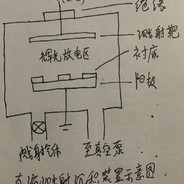 绝缘
溅射靶
辉光放电区
衬底
阳极
溅射气体
至真空泵
直流溅射沉积装置示意图